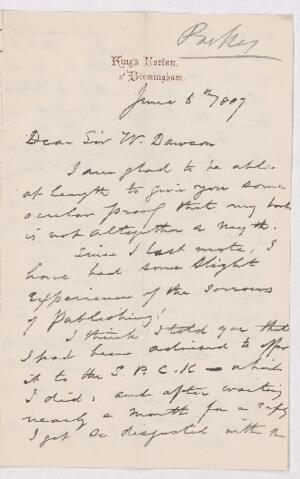 Parker
King's Norton.
nr Birmingham.
June 6th 1887
Dear Sir W. Dawson
I am glad to be able
at length to give you some
ocular proof that my book
is not altogether a myth.
Since I last wrote, I
have had some slight
experience of the sorrows
of Publishing!
I think I told you that
I had been advised to offer
it to the S. P. C. K — which
I did: and after waiting
nearly a month for a reply
I got so disgusted with the